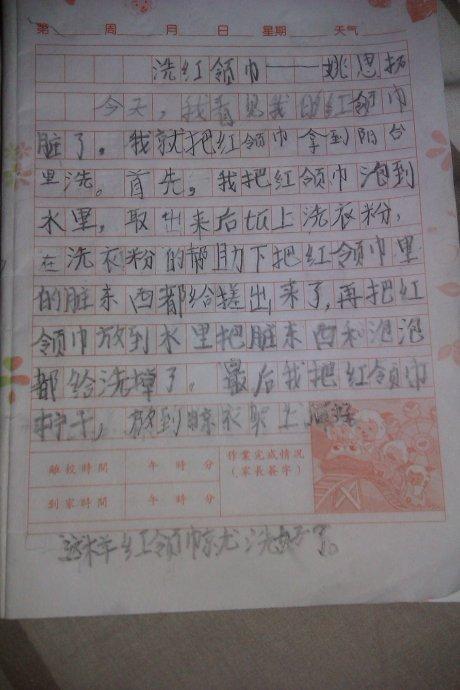 第 周 月 日 星期 天气
洗红领巾——姚思扬
今天，我看见我的红领巾
脏了。我就把红领巾拿到阳台
里洗。首先，我把红领巾泡到
水里，取出来后加上洗衣粉，
在洗衣粉的帮助下把红领巾里
的脏东西都给搓出来了，再把红
领巾放到水里把脏东西和泡泡
都给洗掉了。最后我把红领巾
拧干，放到晾衣架上
離校時間 午 時 分
到家時間 午 時 分
作業完成情況
（家長簽字）
这样红领巾就洗好了。